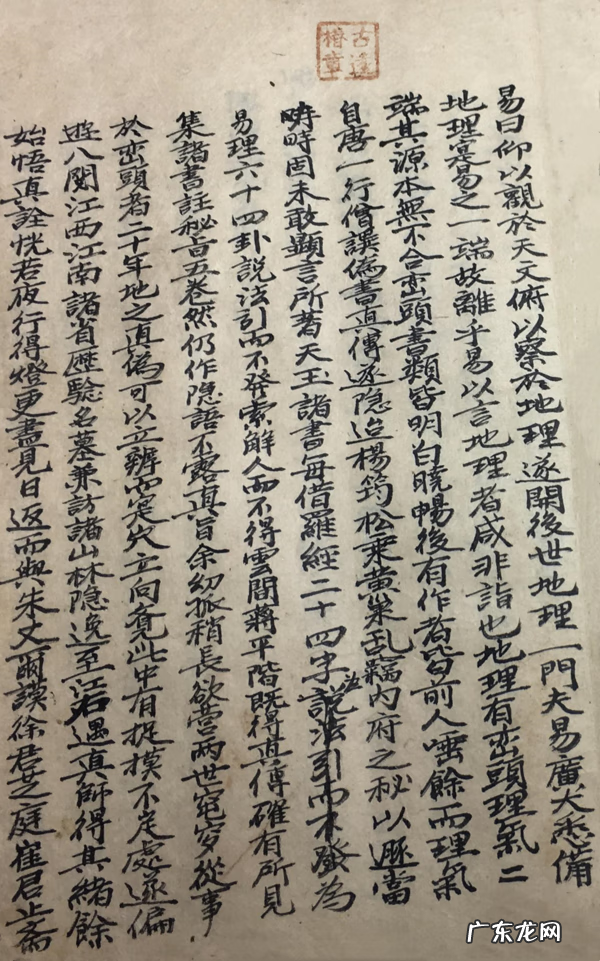 易曰仰以觀於天文俯以察於地理遂開後世地理一門夫易廣大悉備
地理寔易之一端故離乎易以言地理者咸非詣也地理有峦頭理氣二
端其源本無不合峦頭書類皆明白曉暢後有作者皆前人唾餘而理氣
自唐一行僧譔偽書真傳遂隐迨楊筠松乘黄巢乱竊内府之秘以遯當
時時固未敢顯言所著天玉諸書每借羅經二十四字說法引而不發為
易理六十四卦説法引而不發索解人而不得雲間蔣平階既得真傳確有所見
集諸書註秘旨五卷然仍作隐語不露真旨余幼孤稍長欲营两世窀穸從事
於峦頭者二十年地之真偽可以立辨而㝎穴立向竟此中有捉摸不定處遂偏
遊八閩江西江南諸省歷驗名墓兼訪諸山林隐逸至江右遇真師得其緒餘
始悟真詮恍若夜行得燈更盡見日返而與朱丈爾謨徐君芝庭崔君止齋
广东龙网